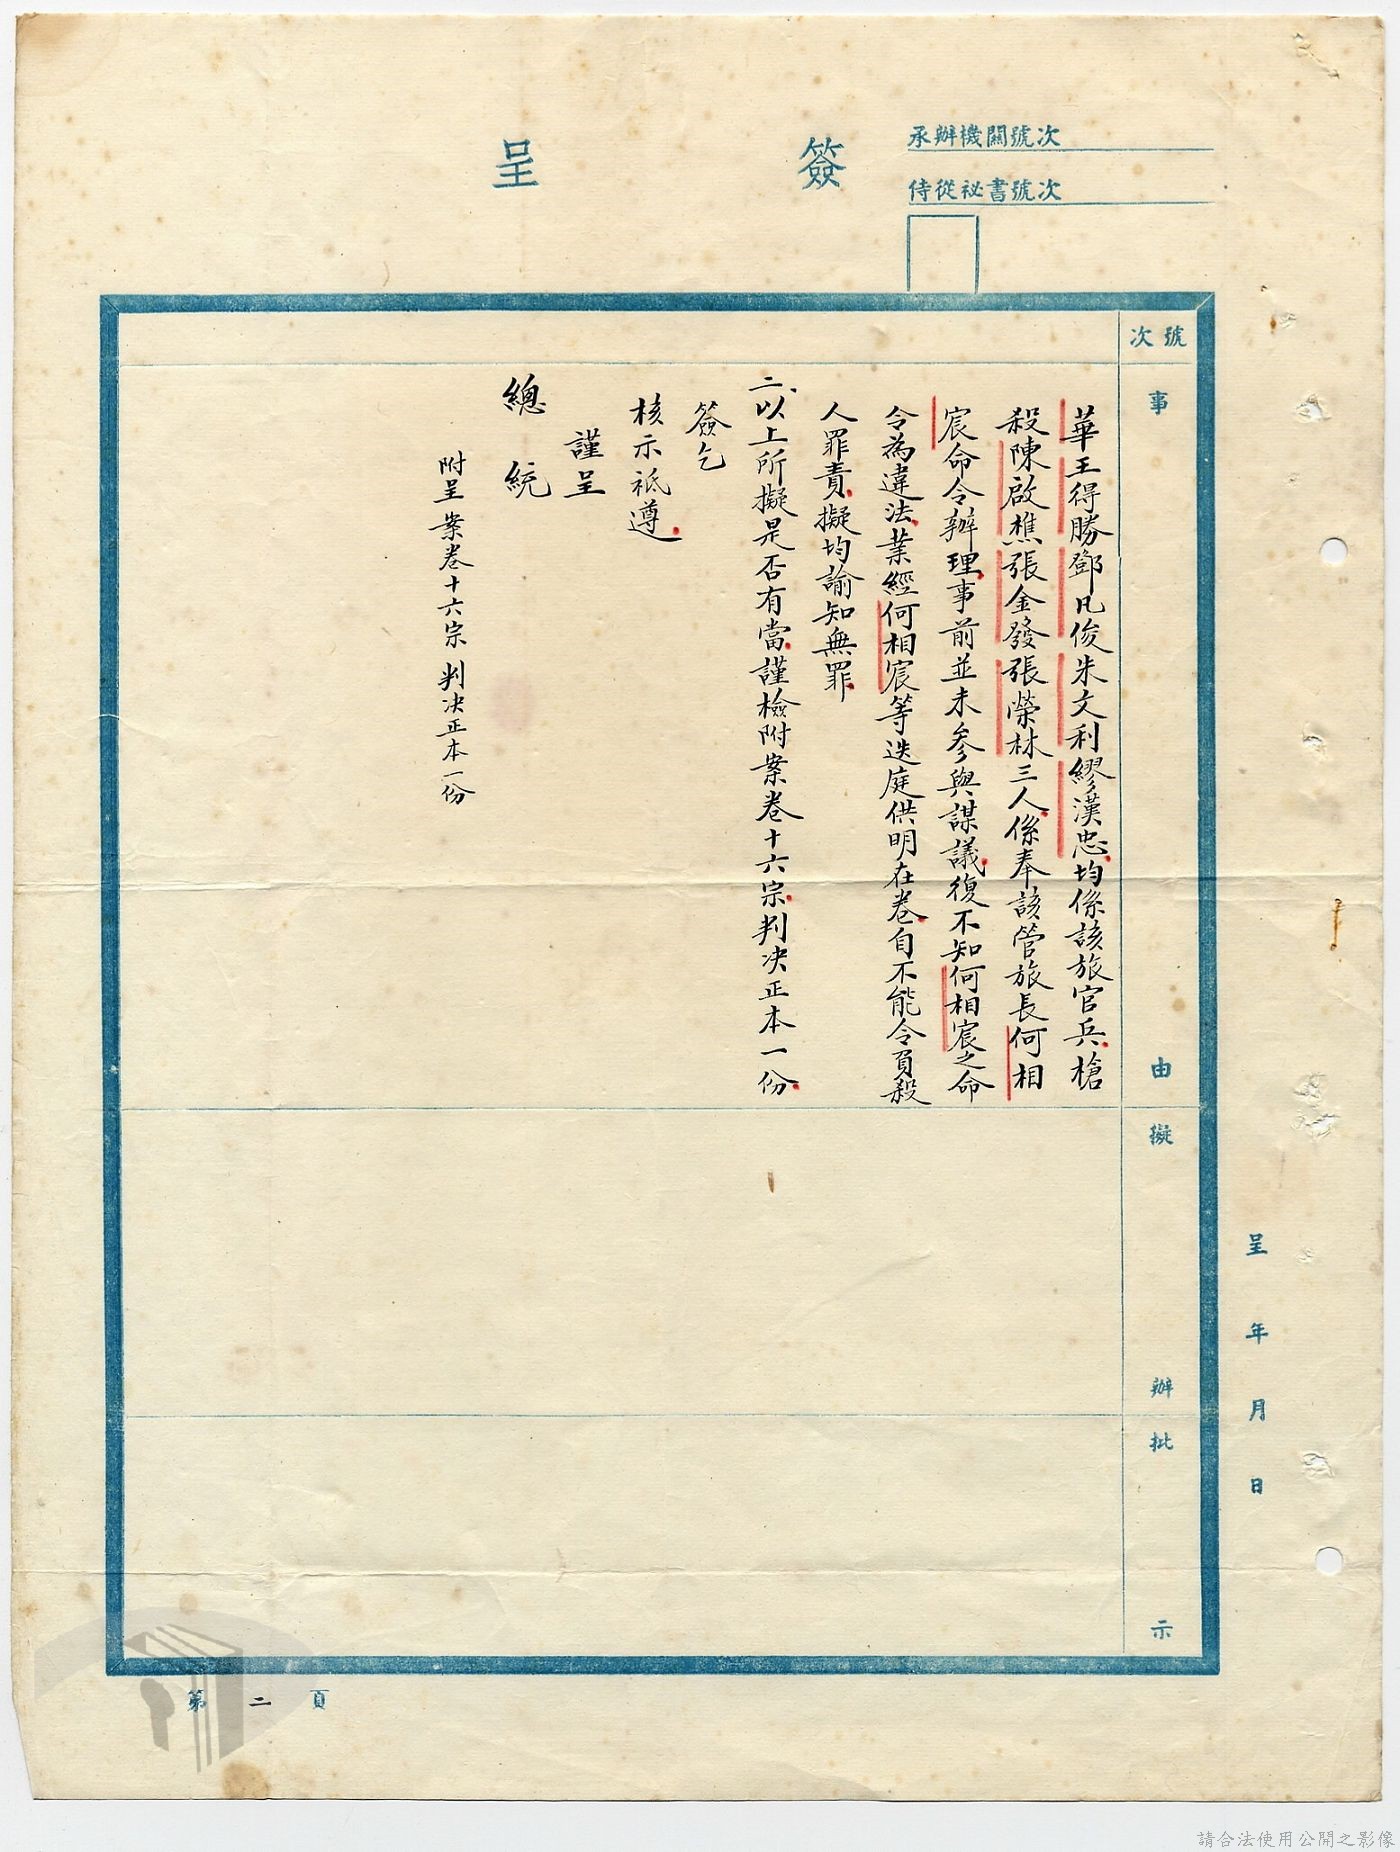 簽呈
承辦機關號次
侍從祕書號次
號次
事由
擬辦
批示
呈 年 月 日
華王得勝鄧凡俊朱文利繆漢忠均係該旅官兵槍
殺陳啟樵張金發張榮林三人係奉該管旅長何相
宸命令辦理事前並未參與謀議復不知何相宸之命
令為違法業經何相宸等迭庭供明在卷自不能令負殺
人罪責擬均諭知無罪
二、以上所擬是否有當謹檢附案卷十六宗判决正本一份
簽乞
核示祗遵
謹呈
總統
附呈案卷十六宗判决正本一份
第二頁
請合法使用公開之影像